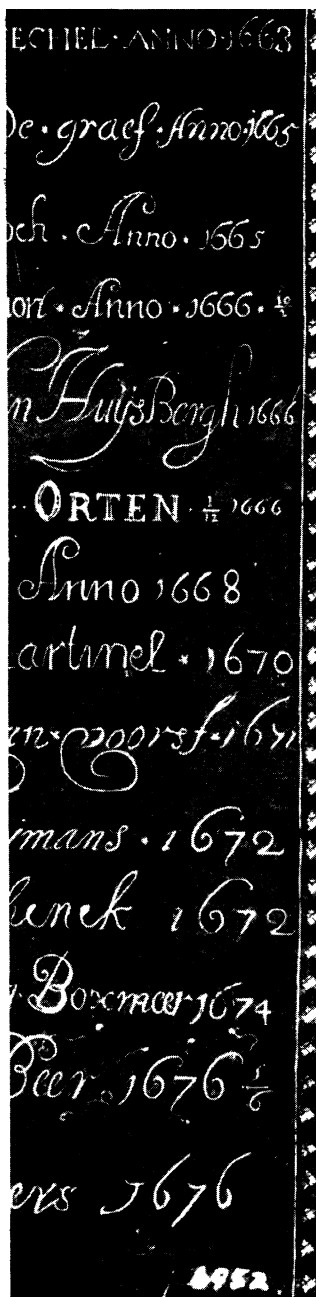 ECHEL·ANNO·1663
De·graef·Anno·1665
och·Anno·1665
ort·Anno·1666·
n HuijsBergh 1666
ORTEN·1/12 1666
Anno 1668
artinel·1670
1671
imans·1672
benek 1672
Boxmeer 1674
Beer 1676 1/6
ers 1676
6952